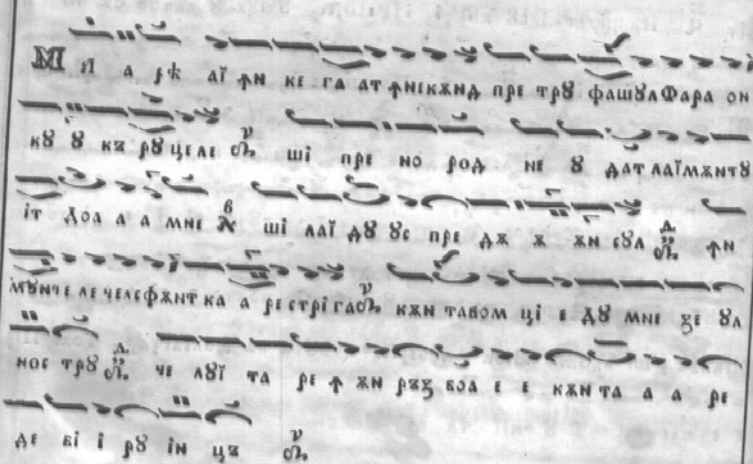 МИ А РѢ АЇ ꙞН КЕ ГА АТ ꙞНЕКѪНД ПРЕ ТРꙋ ФАШꙋЛ ФАРА ОН
Кꙋ ꙋ КЪ Рꙋ ЦЕЛЕ ШІ ПРЕ НО РОД НЕ ꙋ ДАТ ЛАЇ МѪНТꙋ
ІТ ДОА А А МНЕ ШІ ЛАЇ Дꙋ ꙋС ПРЕ ДѪ Ѫ ѪН СꙋЛ ꙞН
МꙋНЧЕ ЛЕ ЧЕЛЕ ФѪНТ КА А РЕ СТРІГА КѪН ТАВОМ ЦІ Е Дꙋ МНЕ ꙀЕ ꙋЛ
НОС ТРꙋ ЧЕ ЛꙋЇ ТА РЕ Ꙟ ѪН РЪꙀ БОА Е Е КѪН ТА А А РЕ
ДЕ БІ І Рꙋ ІН ЦЪ